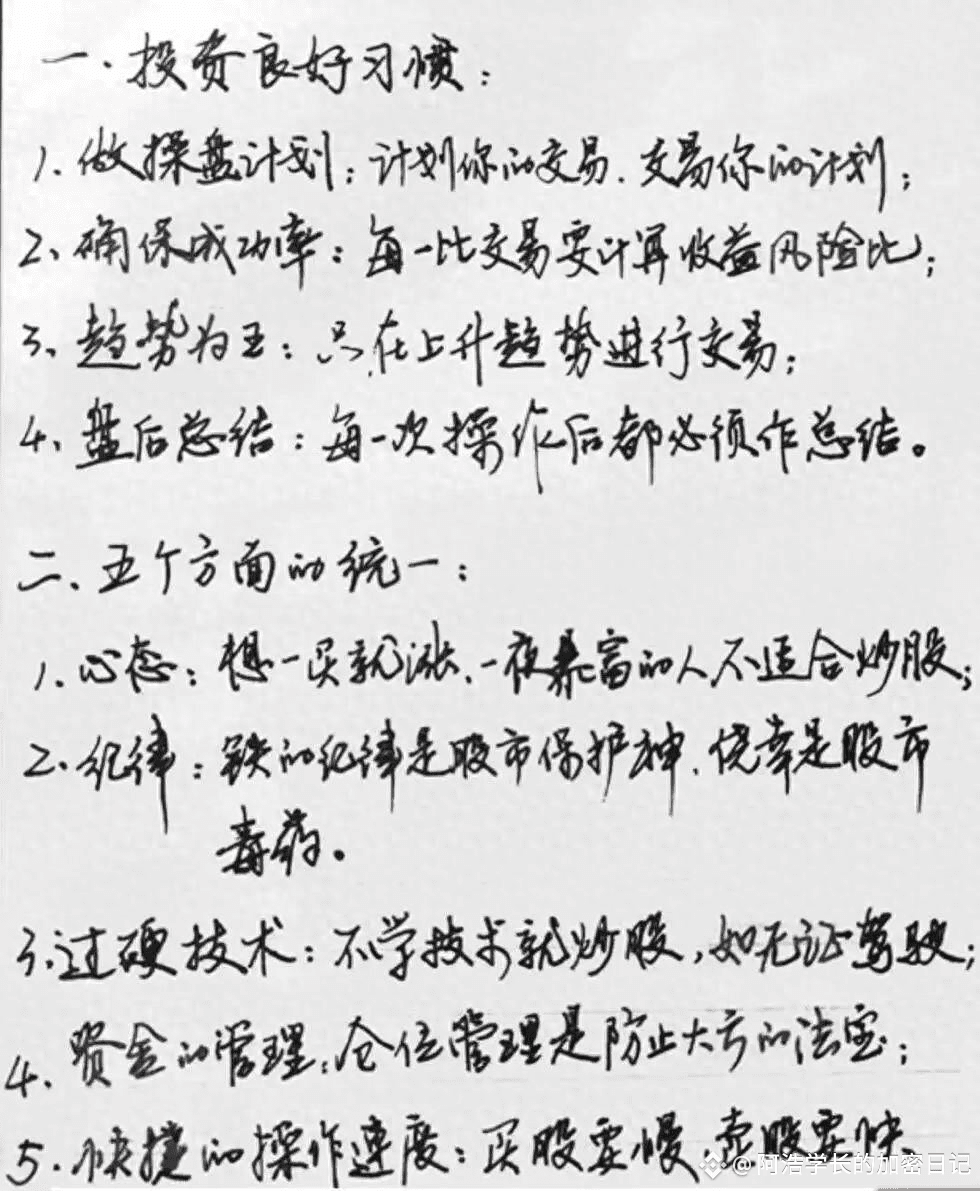 一.投资良好习惯:
1.做操盘计划:计划你的交易.交易你的计划;
2、确保成功率:每一比交易要计算收益风险比;
3、趋势为王:只在上升趋势进行交易;
4、盘后总结:每一次操作后都必须作总结。
二、五个方面的统一:
1.心态:想一买就涨.一夜暴富的人不适合炒股;
2.纪律:铁的纪律是股市保护神.侥幸是股市
毒药。
3.过硬技术:不学技术就炒股,如无证驾驶;
4.资金的管理:仓位管理是防止大亏的法宝;
5.快捷的操作速度:买股要慢,卖股要快
@阿浩学长的加密日记